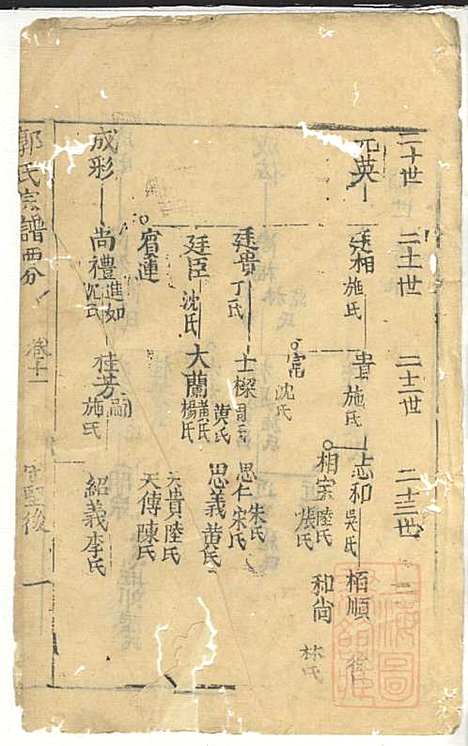 二十世 二十一世 二十二世 二十三世
英 廷相 施氏 貴 施氏 志和 吳氏 栢順
富 沈氏 相宗 陸氏 張氏 和尚 林氏
廷貴 丁氏 士樑 黄氏 思仁 宋氏 朱氏
廷臣 沈氏 大蘭 楊氏 思義 黄氏
天貴 陸氏
宿蓮 天傳 陳氏
成彩 尚禮 進如 沈氏 桂芳 嗣 施氏 紹義 李氏
郭氏宗譜西分 卷十一 後 一